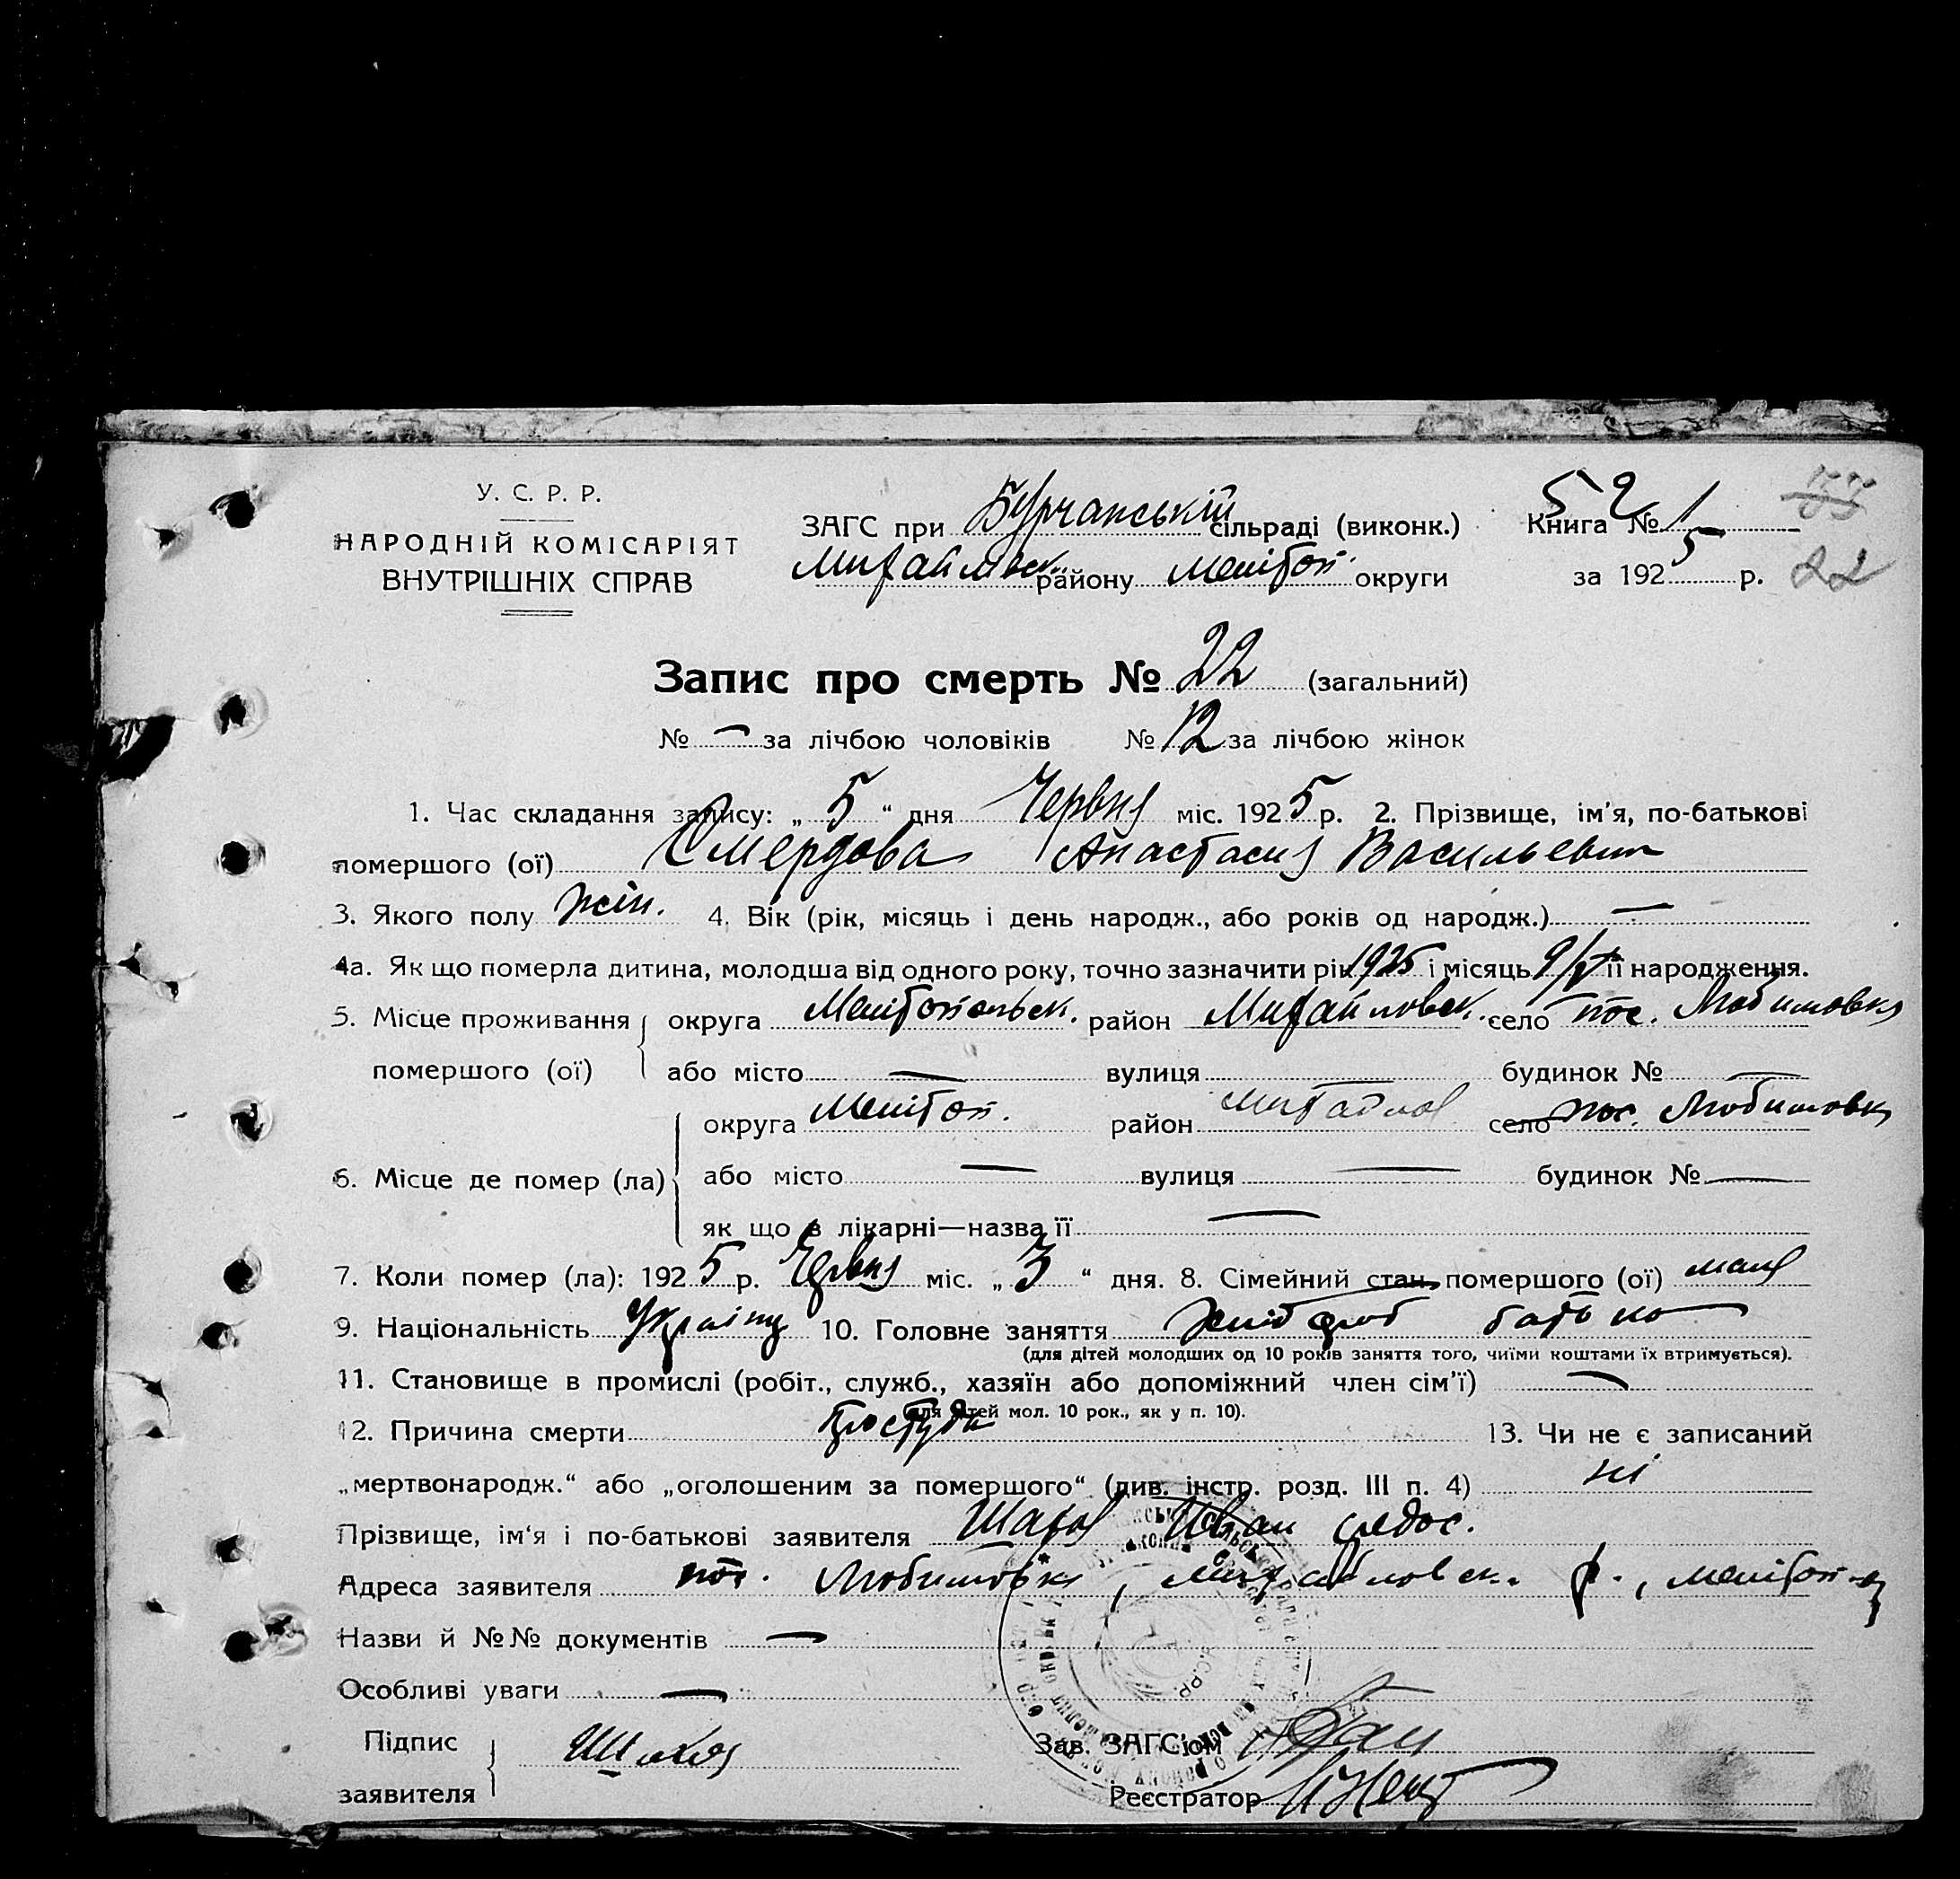 У. С. Р. Р.
НАРОДНІЙ КОМІСАРІЯТ
ВНУТРІШНІХ СПРАВ
ЗАГС при Бурчанській сільраді (виконк.)
Михайлівск. району Мелітоп. округи
52
Книга № 1
за 1925 р. 22
Запис про смерть № 22 (загальний)
№ — за лічбою чоловіків № 12 за лічбою жінок
1. Час складання запису: „ 5 “ дня Червня міс. 1925 р. 2. Прізвище, ім'я, по-батькові
помершого (ої) Смердова Анастасия Васильевич
3. Якого полу жін. 4. Вік (рік, місяць і день народж., або років од народж.) —
4а. Як що померла дитина, молодша від одного року, точно зазначити рік 1925 і місяць 9/V її народження.
5. Місце проживання округа Мелітопольск. район Михайловск. село пос. Любимовка
помершого (ої) або місто — вулиця — будинок № —
округа Меліт оп. район Михайлов село пос. Любимовка
6. Місце де помер (ла) або місто — вулиця — будинок № —
як що в лікарні—назва її —
7. Коли помер (ла): 1925 р. Червня міс. „ 3 “ дня. 8. Сімейний стан помершого (ої) мала
9. Національність Україн 10. Головне заняття хлібороб батько
(для дітей молодших од 10 років заняття того, чиїми коштами їх втримується).
11. Становище в промислі (робіт., служб., хазяїн або допоміжний член сім'ї) —
(для дітей мол. 10 рок., як у п. 10).
12. Причина смерти простуда 13. Чи не є записаний
„мертвонародж.“ або „оголошеним за помершого“ (див. інстр. розд. III п. 4) ні
Прізвище, ім'я і по-батькові заявителя Шахов Иван Федос.
Адреса заявителя пос. Любимовка, Михайловск. р., меліто
Назви й №№ документів —
Особливі уваги —
Підпис
заявителя Шахов
Зав. ЗАГС'ом
Реєстратор